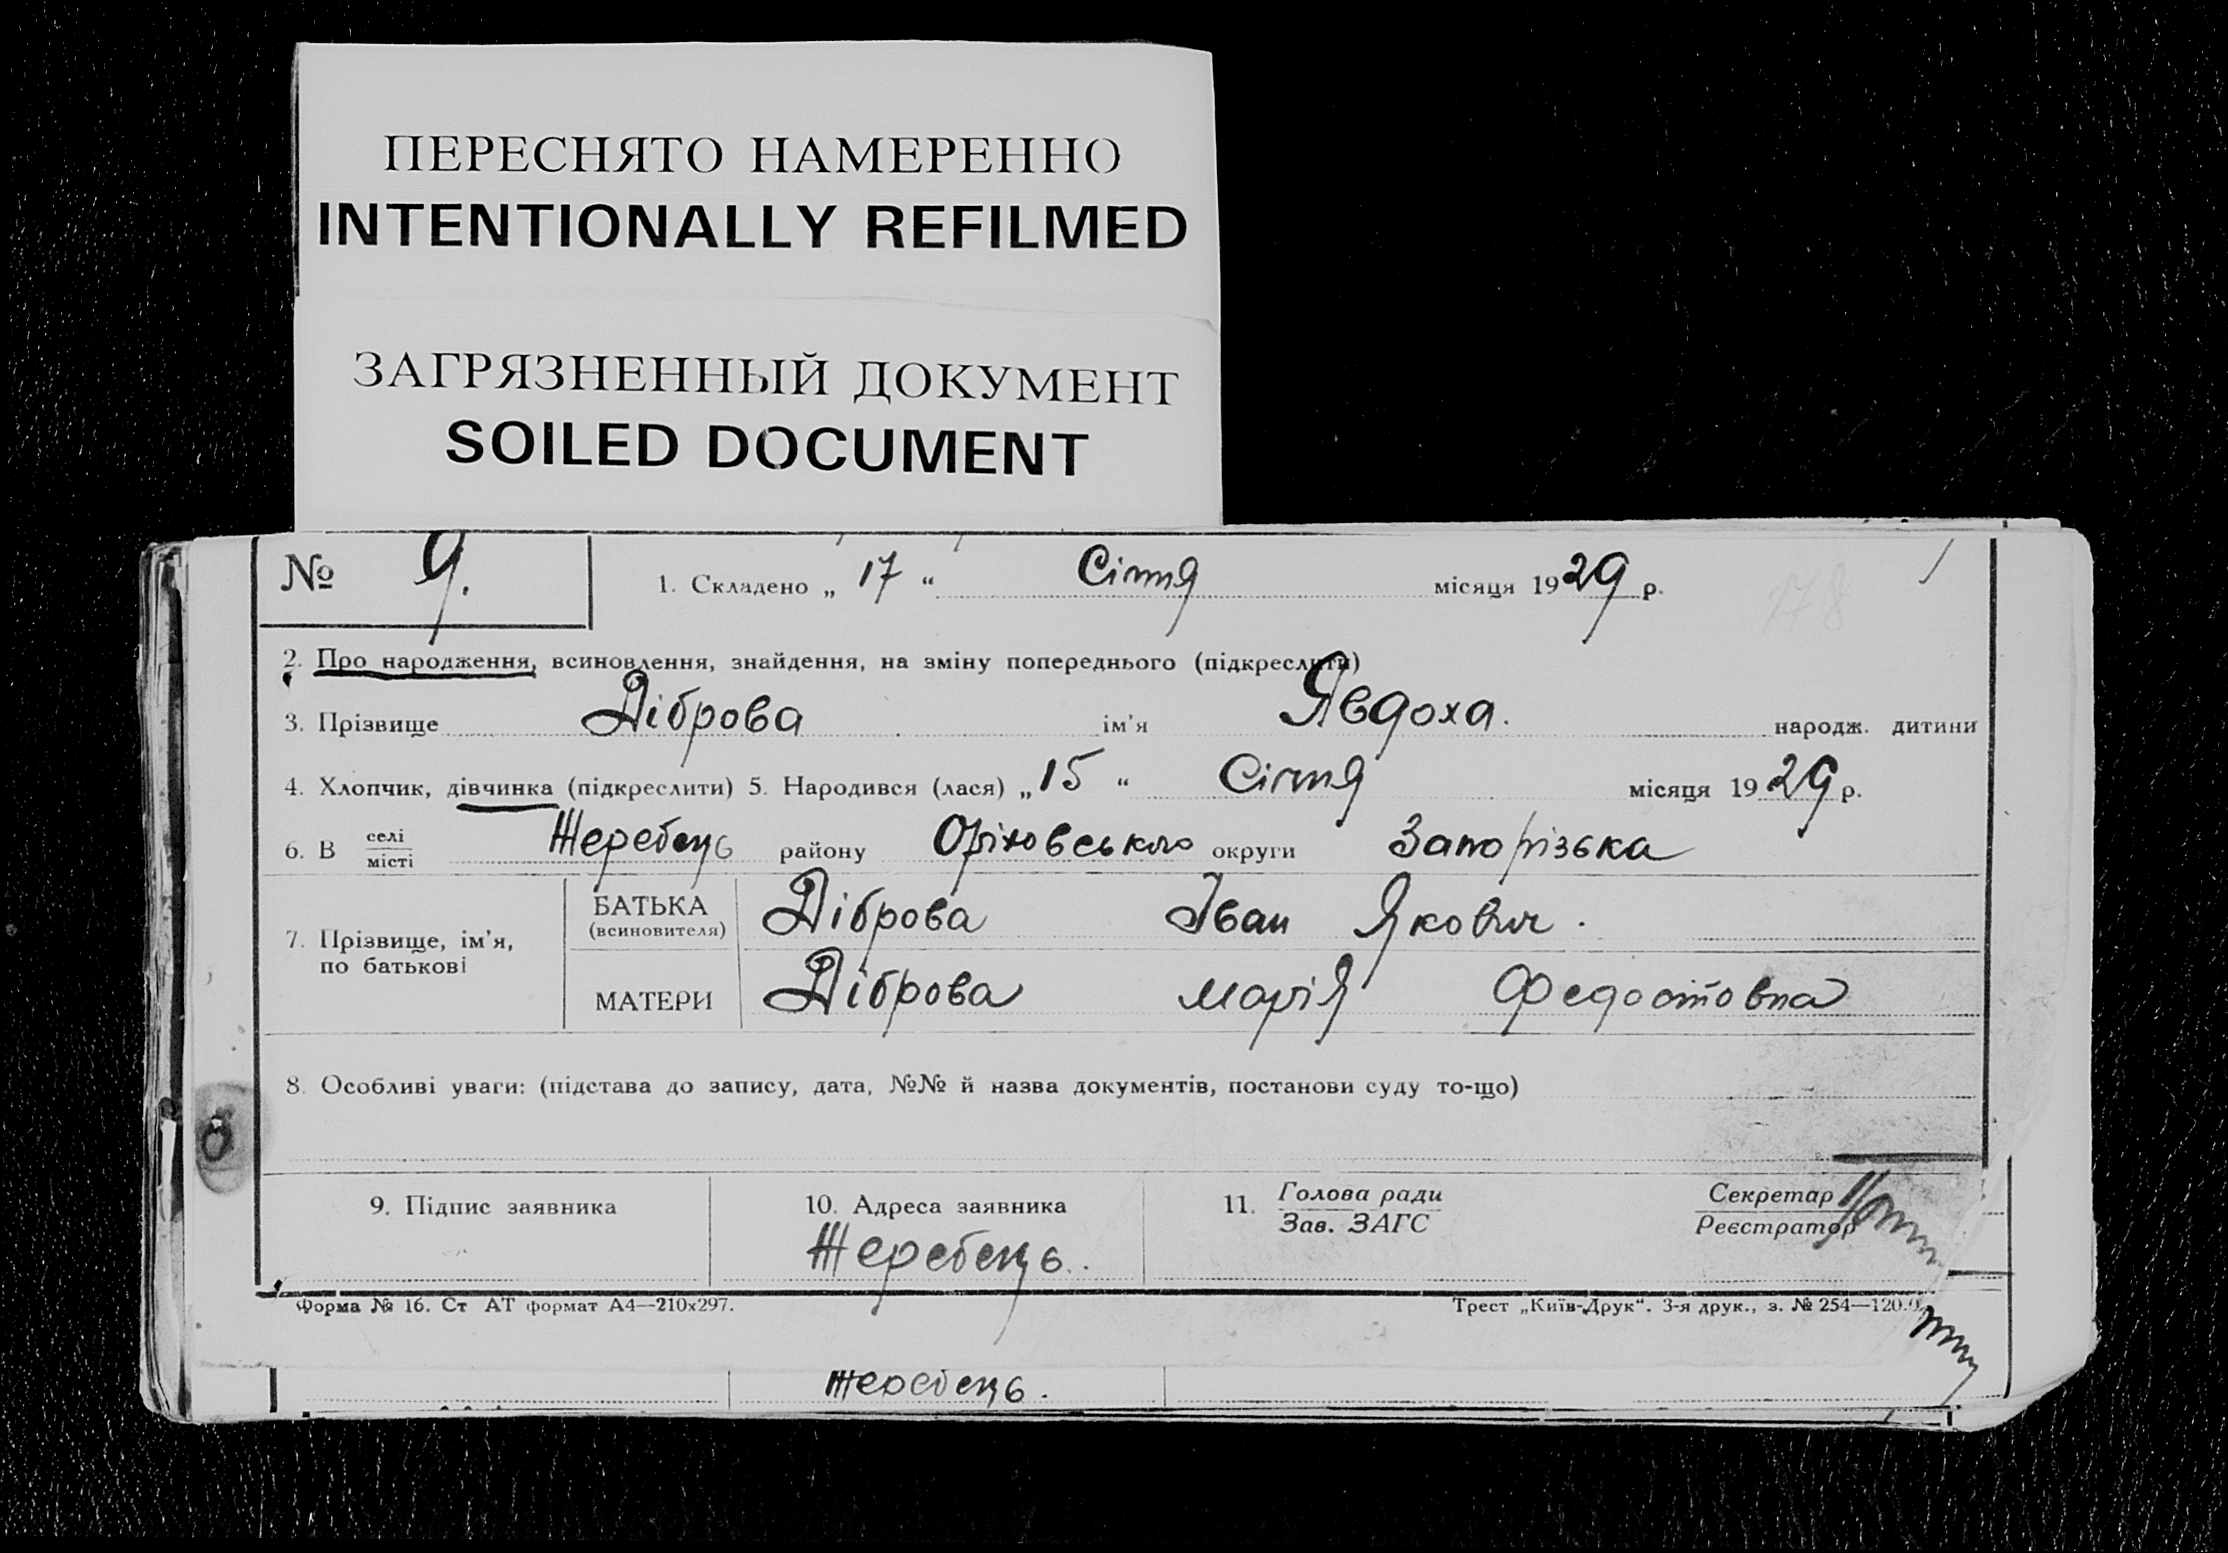 ПЕРЕСНЯТО НАМЕРЕННО
INTENTIONALLY REFILMED
ЗАГРЯЗНЕННЫЙ ДОКУМЕНТ
SOILED DOCUMENT
№ 9. 1. Складено „ 17 “ Січня місяця 1929 р.
2. Про народження, всиновлення, знайдення, на зміну попереднього (підкреслити)
3. Прізвище Діброва ім'я Явдоха. народж. дитини
4. Хлопчик, дівчинка (підкреслити) 5. Народився (лася) „ 15 “ Січня місяця 1929 р.
6. В селі/місті Жеребець району Оріховського округи Запорізька
7. Прізвище, ім'я, по батькові
БАТЬКА (всиновителя) Діброва Іван Якович.
МАТЕРИ Діброва Марія Федостовна
8. Особливі уваги: (підстава до запису, дата, №№ й назва документів, постанови суду то-що)
9. Підпис заявника 10. Адреса заявника 11. Голова ради Секретар
Зав. ЗАГС Реєстратор
Жеребець.
Форма № 16. Ст АТ формат А4—210х297. Трест „Київ-Друк“. 3-я друк., з. № 254—120.0
Жеребець.